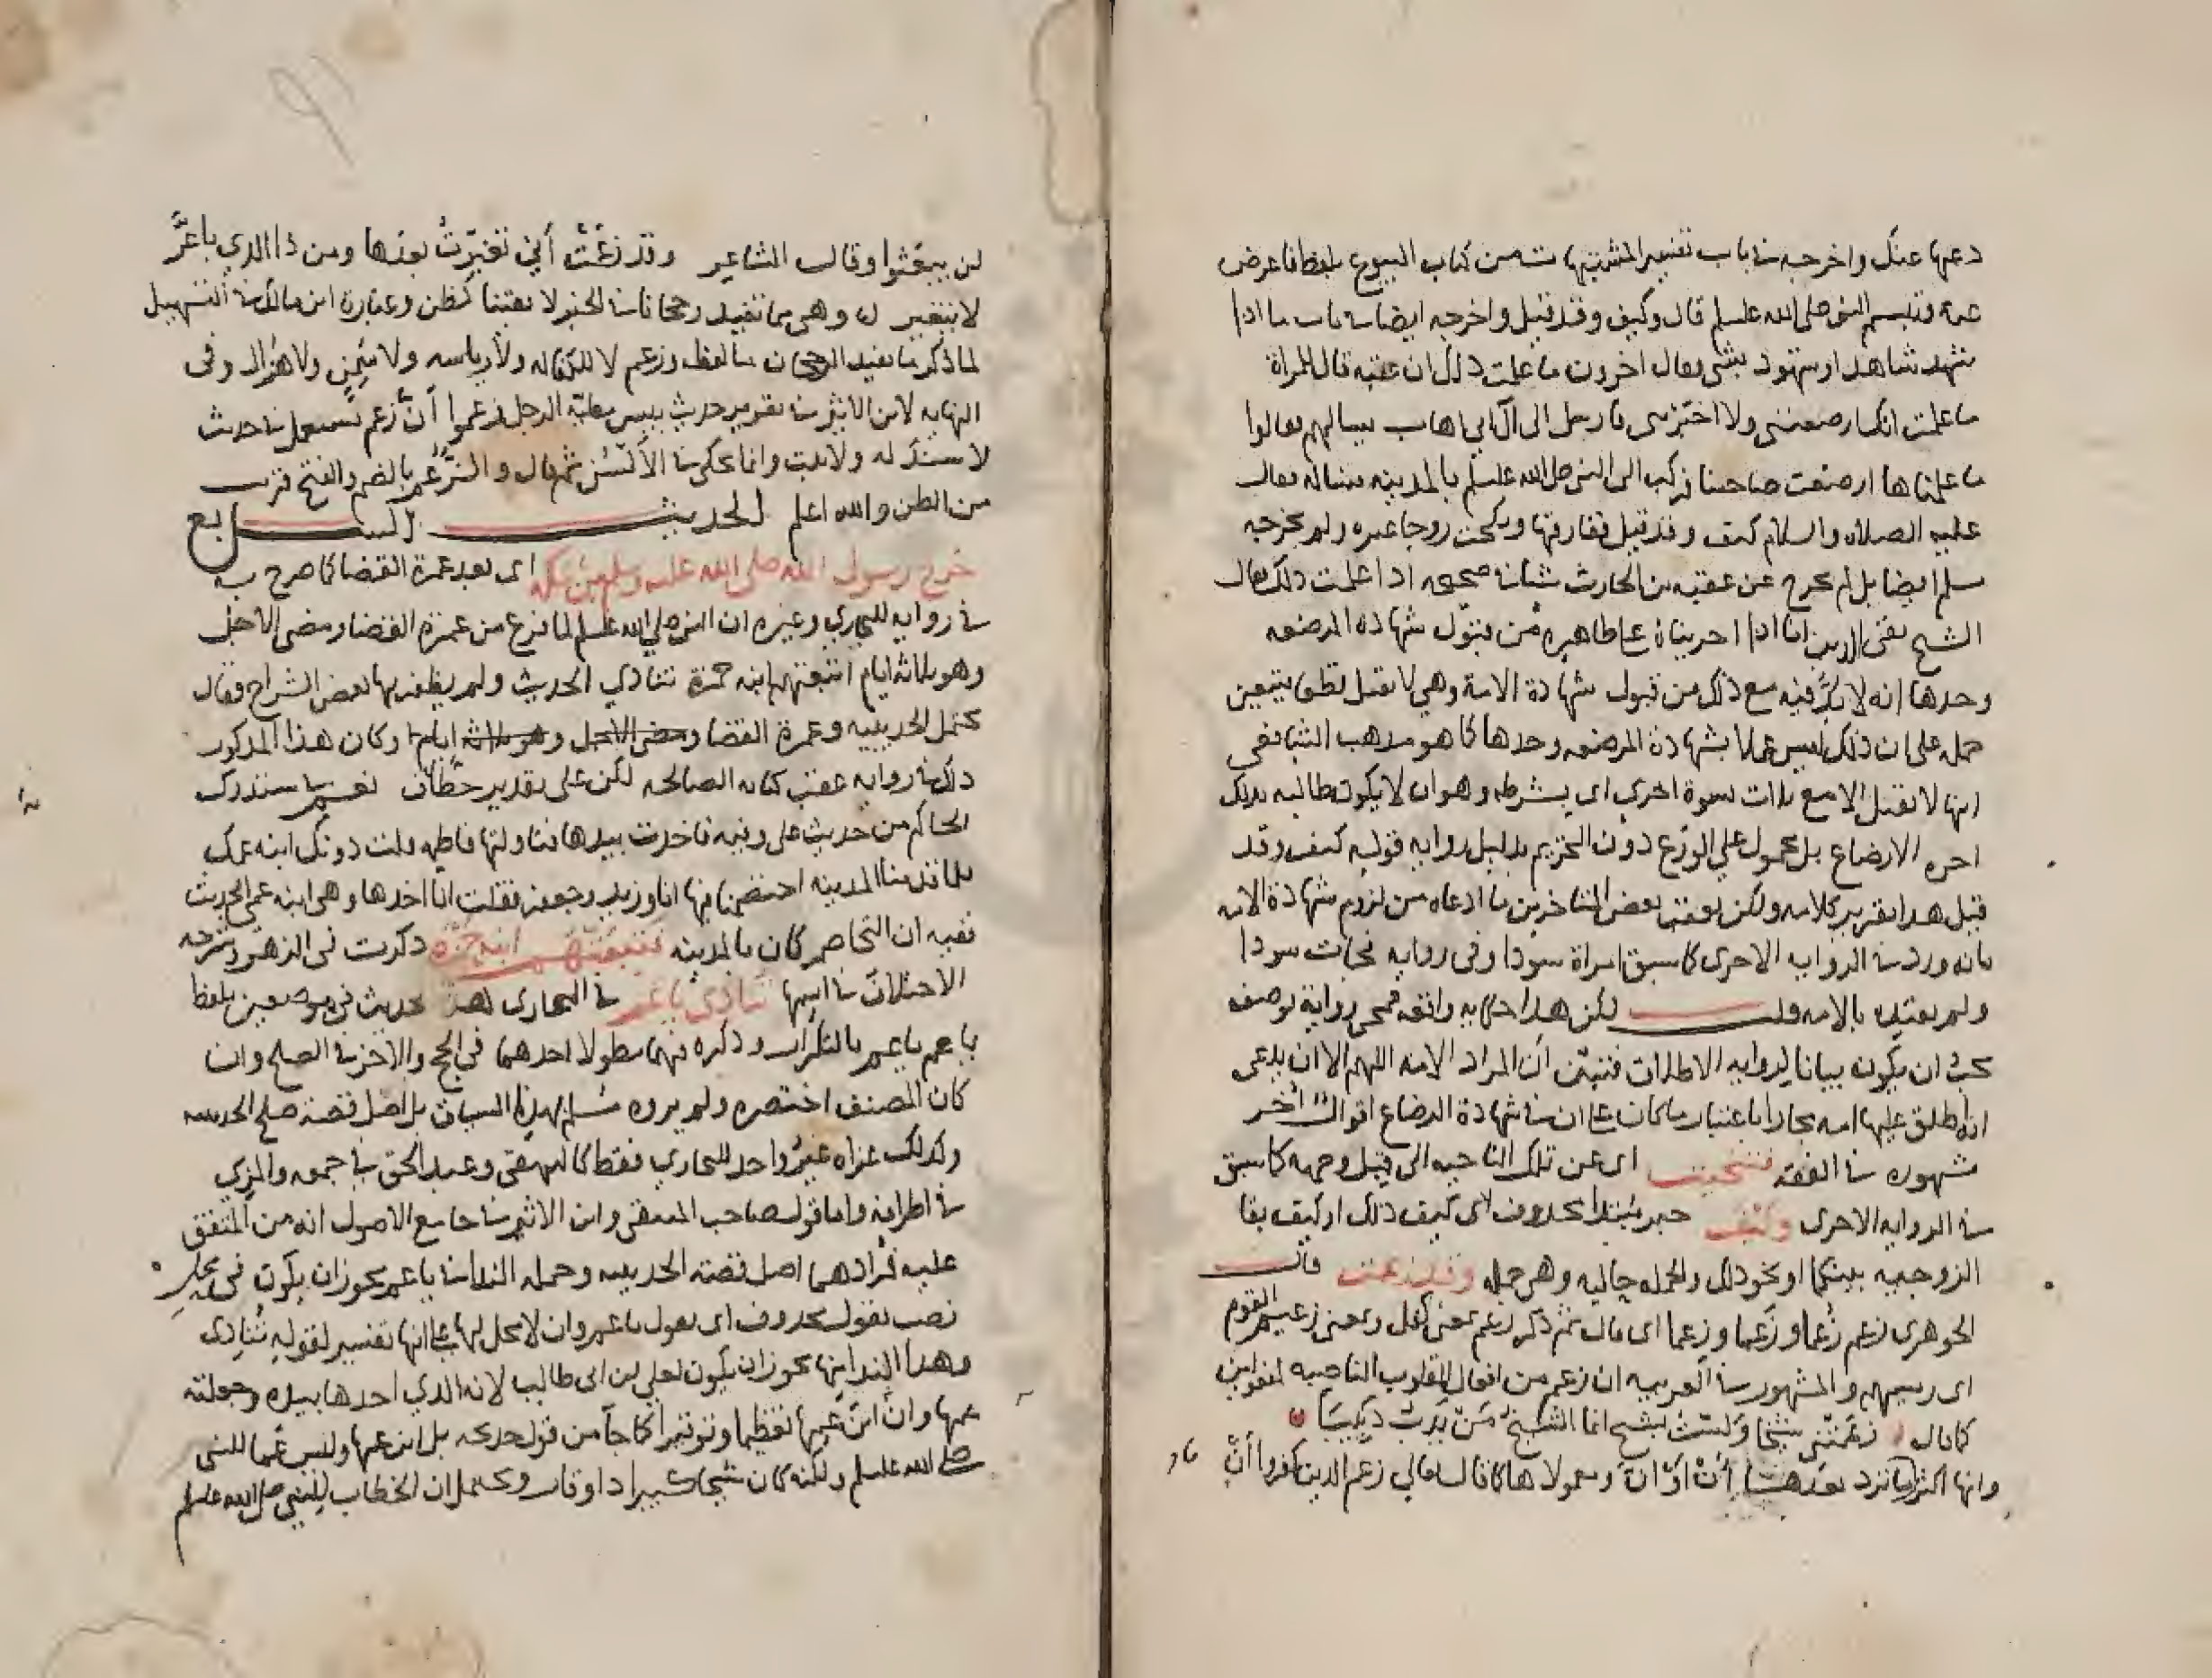 دعها عنك واخرجه في باب تفسير المشبهات من كتاب البيوع بلفظ فاعرض
عنه وتبسم النبي صلى الله عليه وسلم قال وكيف وقد قيل واخرجه ايضا في باب ما اذا
شهد شاهد او شهود بشي وقال اخرون ما علمنا ذلك ان عقبة قال للمراة
ما علمت انك ارضعتني ولا اخبرتني فارسل الى ال ابي اهاب يسالهم فقالوا
ما علمناها ارضعت صاحبنا فركب الى النبي صلى الله عليه وسلم بالمدينه فساله فقال
عليه الصلاة والسلام كيف وقد قيل ففارقها ونكحت زوجا غيره ولم يخرجه
مسلم ايضا بل لم يخرج عن عقبة بن الحارث شيئا في صحيحه اذا علمت ذلك فقال
الشيخ تقي الدين انا اذا اجريناه على ظاهره من قبول شهادة المرضعه
وحدها انه لا بد فيه مع ذلك من قبول شهادة الامة وهي لا تقبل فيتعين
حمله على ان ذلك ليس عملا بشهادة المرضعه وحدها كما هو مذهب الشافعي
انها لا تقبل الا مع ثلاث نسوة اخرى اي بشرطه وهو ان لا يكون طالبه بذلك
اجرة الارضاع بل محمول على الورع دون التحريم بدليل رواية قوله كيف وقد
قيل هذا تقرير كلامه ولكن تعقب بعض المتاخرين ما ادعاه من لزوم شهادة الامه
بانه ورد في الرواية الاخرى كما سبق امراة سودا وفي رواية فجات سودا
ولم يقيده بالامه قلت لكن هذا حكاية واقعه فمجي رواية بوصف
يجب ان يكون بيانا لرواية الاطلاق فتبين ان المراد الامه اللهم الا ان يدعى
انه اطلق عليها امه مجازا باعتبار ما كان على ان في شهادة الرضاع اقوالا اخر
مشهوره في الفقه فتنحيت اى عن تلك الناحيه الى قبل وجهه كما سبق
في الرواية الاخرى وكيف خبر مبتدا محذوف اى كيف ذلك او كيف بقا
الزوجيه بينكما او نحو ذلك والجمله حاليه وهي جملة وقد زعمت قال
الجوهرى زعم زعما وزعما وزعما اى قال ثم ذكر زعم بمعنى كفل وبمعنى زعيم القوم
اى رييسهم والمشهور في العربيه ان زعم من افعال القلوب الناصبه لمفعولين
كما قال زعمتني شيخا ولست بشيخ انما الشيخ من يدب دبيبا
وانها اكثر ما ترد بعدها أن أو أنّ ومعمولاها كما قال تعالى زعم الذين كفروا أن
لن يبعثوا وقال الشاعر وقد زعمت أني تغيرت بعدها ومن ذا الذي يا عز
لا يتغير وهي مما تفيد رجحانا في الخبر لا يقينا كظن وعبارة ابن مالك في التسهيل
لما ذكر ما يفيد الرجحان بالفظ وزعم لا لكفاله ولا رياسه ولا سمن ولا هزال وفي
النهايه لابن الاثير في تقرير حديث بيس مطية الرجل زعموا أن زعم تستعمل في حديث
لا سند له ولا ثبت وانما يحكى في الألسن ثم قال والزعم بالضم والفتح قريب
من الظن والله اعلم الحديث السابع
خرج رسول الله صلى الله عليه وسلم من مكة اى بعد عمرة القضا كما صرح به
في رواية للبخاري وغيره ان النبي صلى الله عليه وسلم لما فرغ من عمرة القضا ومضى الاجل
وهو ثلاثة ايام اتبعتهم ابنه حمزة تنادي الحديث ولم يظفر بها بعض الشراح فقال
يحتمل الحديبيه وعمرة القضا ومضى الاجل وهو ثلاثه ايام وكان هذا المذكور
ذلك في رواية عقب كتابه الصالحه لكن على تقدير حذف نعم في مستدرك
الحاكم من حديث علي وفيه فاخذت بيدها فناولتها فاطمه قلت دونك ابنه عمك
فلما قدمنا المدينه اختصمنا فيها انا وزيد وجعفر فقلت انا اخذتها وهي ابنه عمي الحديث
ففيه ان التخاصم كان بالمدينه فتبعتهم ابنة حمزة ذكرت في الزهر وشرحه
الاختلاف في اسمها تنادي يا عم في البخارى هذا الحديث في موضعين بلفظ
يا عم يا عم بالتكرار وذكره فيهما مطولا احدهما في الحج والاخر في الصلح وان
كان المصنف اختصره ولم يروه مسلم بهذا السياق بل اصل قصة صلح الحديبيه
ولذلك عزاه غير واحد للبخاري فقط كالبيهقي وعبد الحق في جمعه والمزي
في اطرافه واما قول صاحب المنتقى وابن الاثير في جامع الاصول انه من المتفق
عليه فمرادهما اصل قصة الحديبيه وجملة الندا في يا عم يجوز ان يكون في محل
نصب بقول محذوف اى تقول يا عم وان لا محل لها على انها تفسير لقوله تنادى
وهذا الندا منها يجوز ان يكون لعلي بن ابي طالب لانه الذي اخذها بيده وجعلته
عمها وان ابن عمها تعظيما وتوقيرا كما جا من قول خديجه بل ابن عمها وليس عما للنبي
صلى الله عليه وسلم ولكنه كان شيخا كبيرا ذا وقار ويحتمل ان الخطاب للنبي صلى الله عليه وسلم